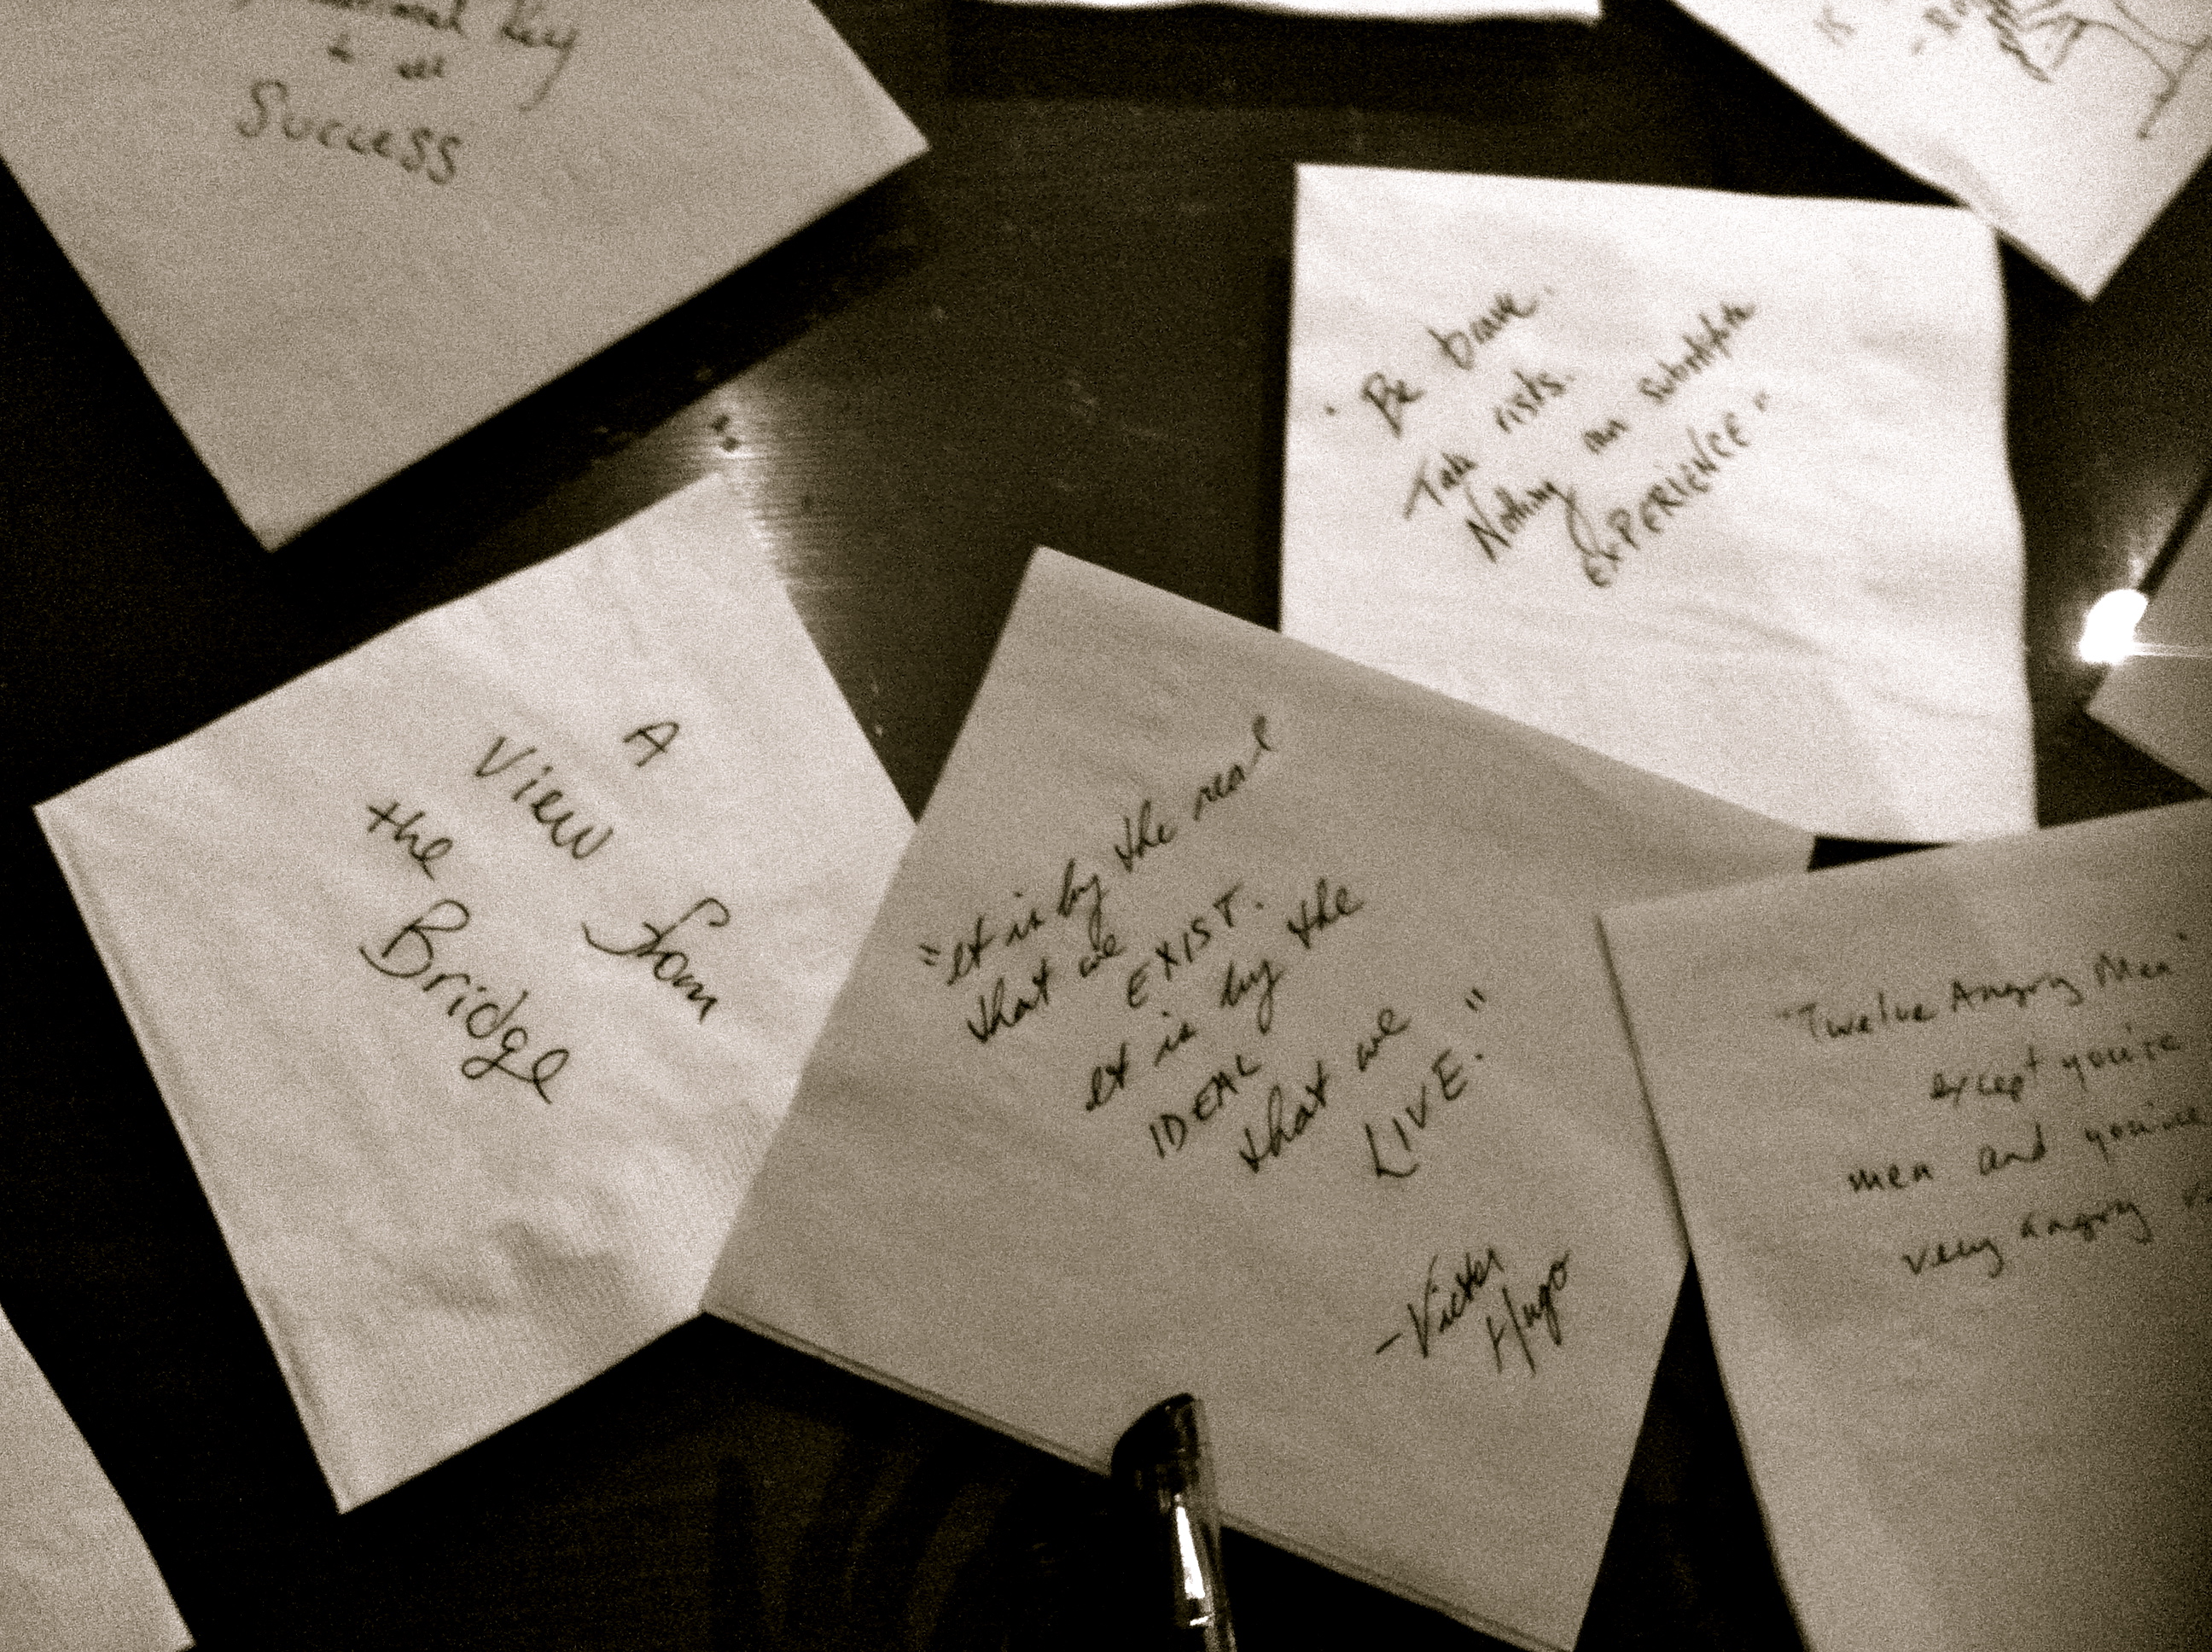 Key
to all
Success
"Be brave.
Take risks.
Nothing can substitute
EXPERIENCE"
A
View from
the Bridge
"It is by the real
that we
EXIST.
It is by the
IDEAL
that we
LIVE."
-Victor
Hugo
"Twelve Angry Men"
except you're
men and you're
very angry